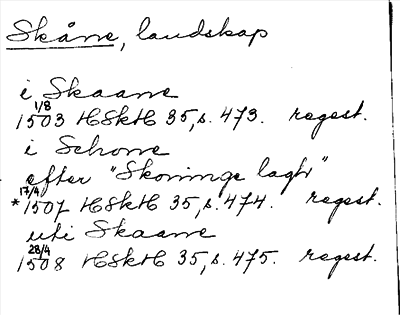 Skåne, landskap
i Skaane
1/8
1503 HSkH 35, s. 473. regest.
i Schone
efter "Skoninge lagh"
17/4
*1507 HSkH 35, s. 474. regest.
uti Skaane
28/4
1508 HSkH 35, s. 475. regest.